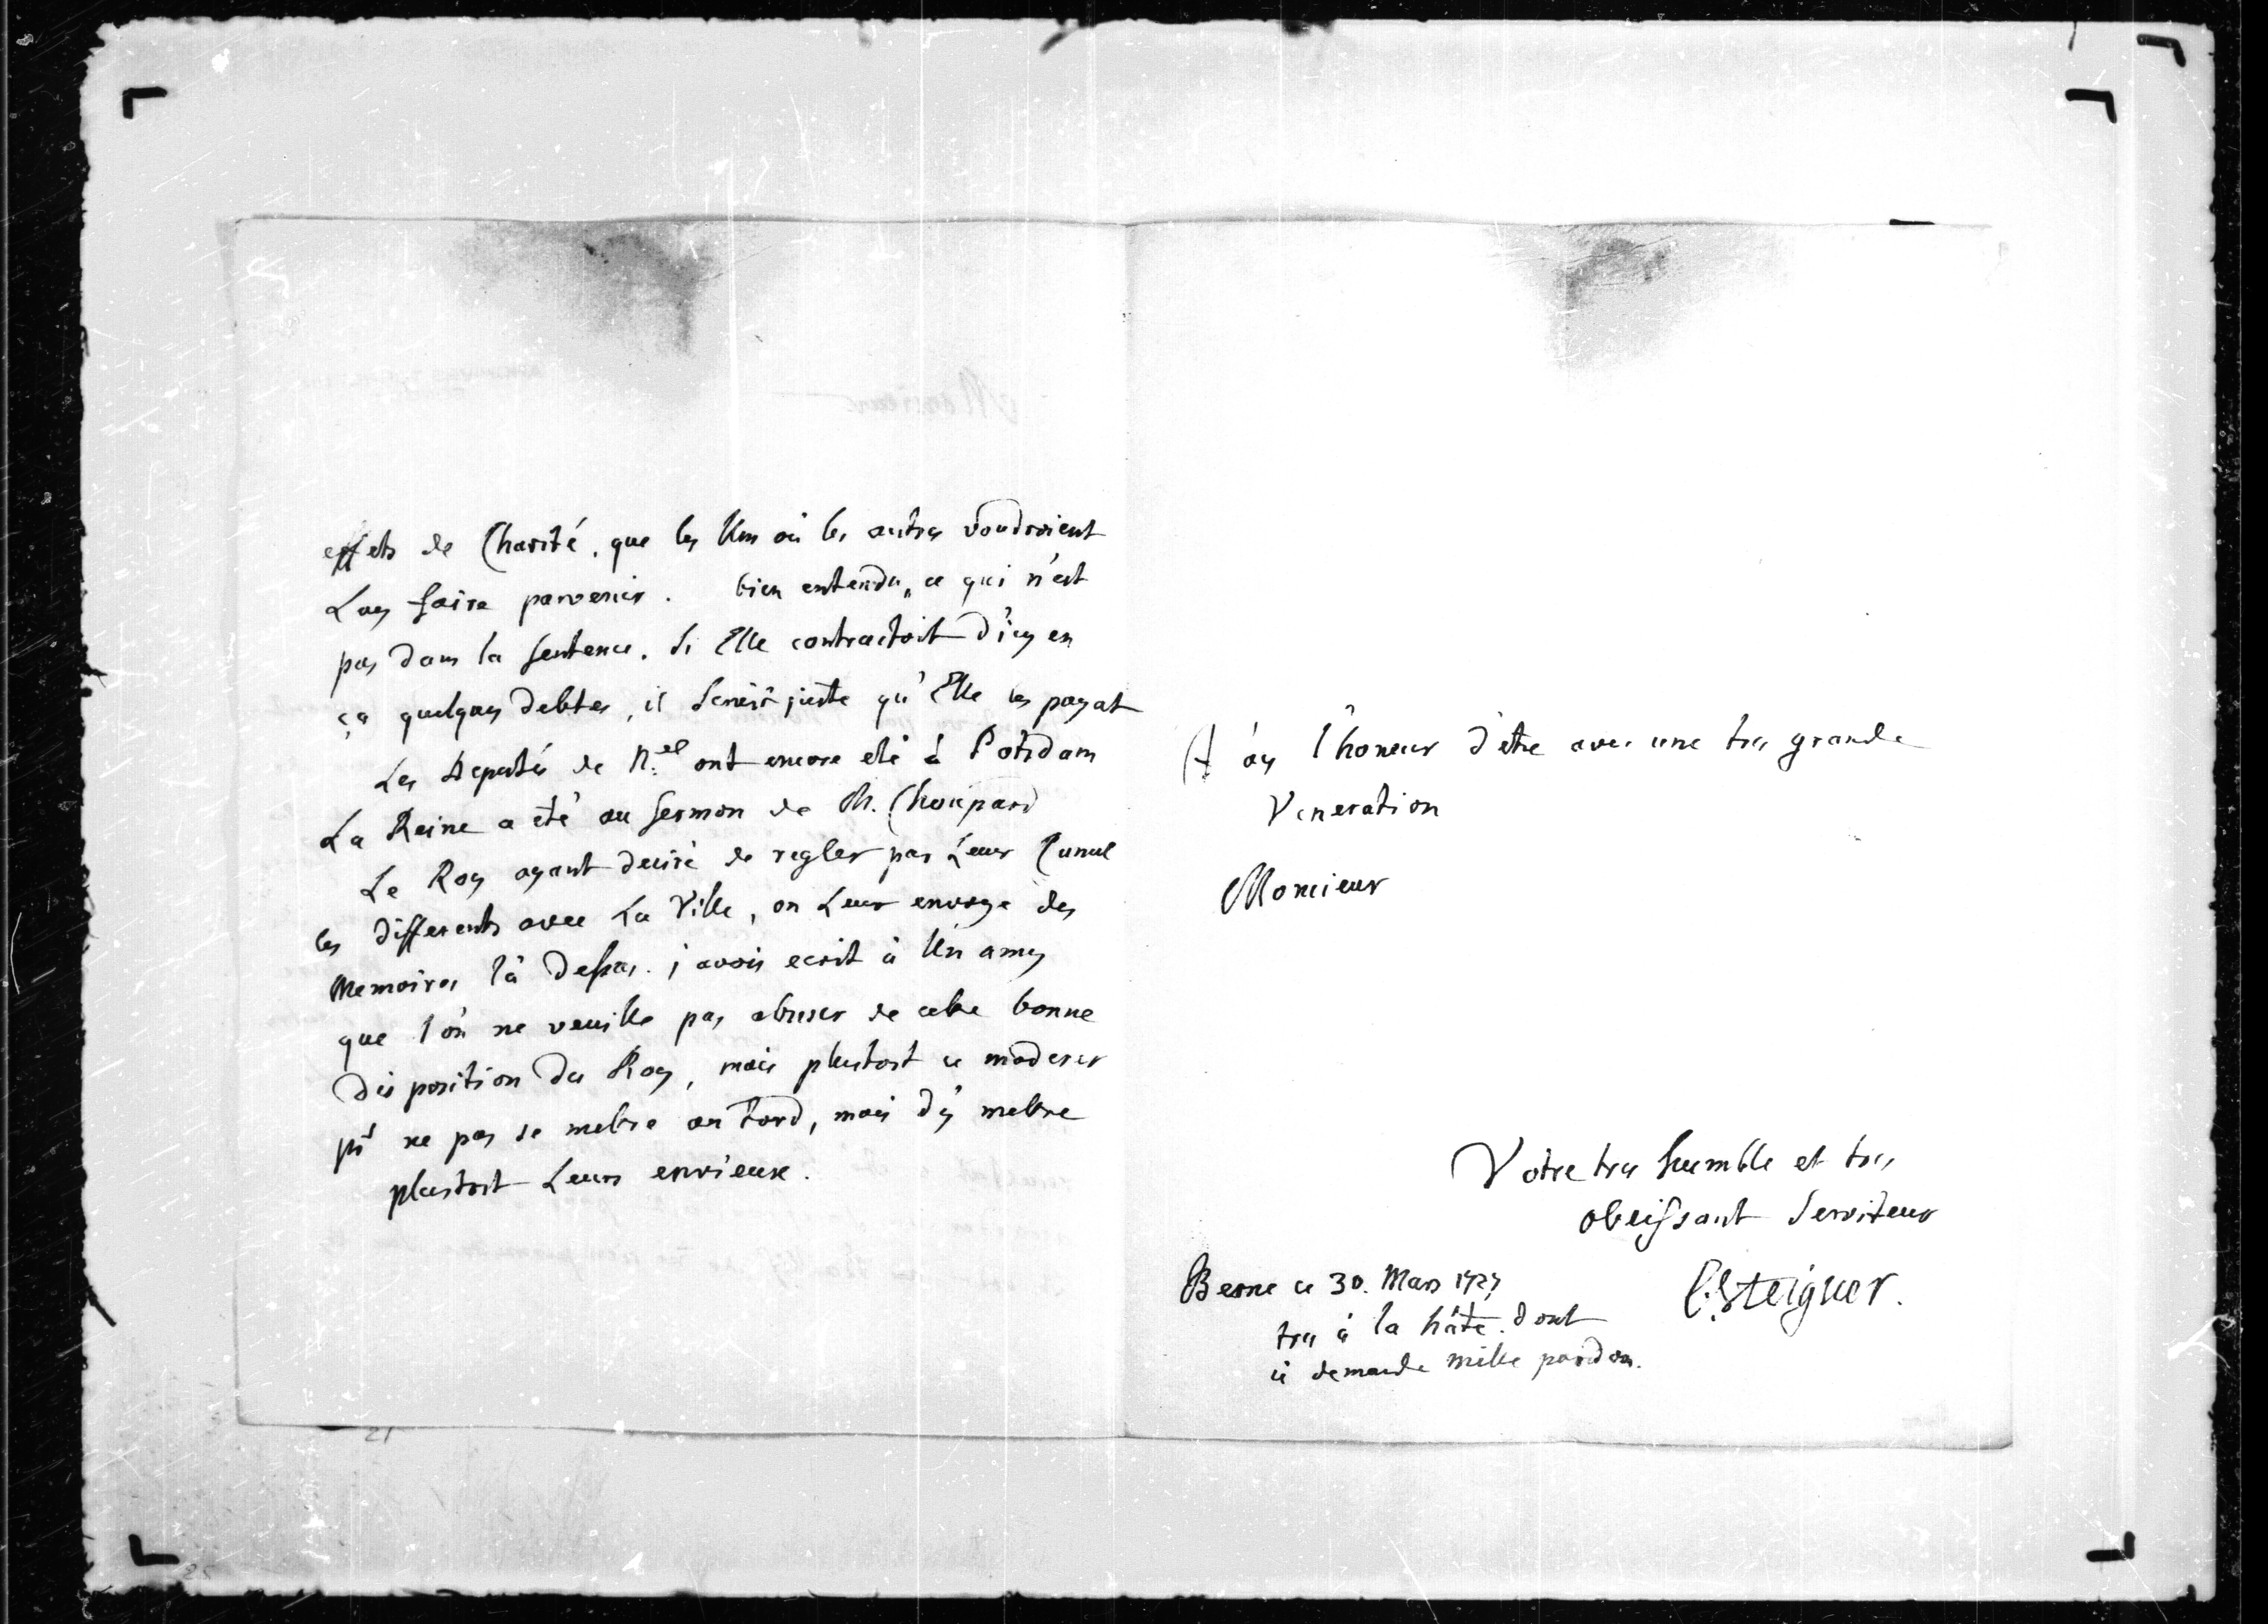 effets de Charité, que les Uns où les autres voudroient
Luy faire parvenir. bien entendu, ce qui n'est
pas dans la sentence. Si Elle contractoit d'icy en
ça quelques debtes, il seroit juste qu'Elle les payat
Les deputés de N.el ont encore eté à Potsdam
La Reine a eté au sermon de M. Choupard
Le Roy ayant desiré de regler par Leur
les differents avec La Ville, on Leur envoye des
Memoires là dessus. j'avois ecrit à Un amy
que l'on ne veuille pas abuser de cette bonne
disposition du Roy, mais plustost se moderer
pr ne pas se mettre au tord, mais d'y mettre
plustost Leurs envieux.
Et ay l'honeur d'etre avec une tres grande
Veneration
Monsieur
Votre tres humble et tres
obeissant Serviteur
Berne ce 30. Mars 1727
CSteiguer.
tres à la hâte. dont
je demande mille pardon.
21